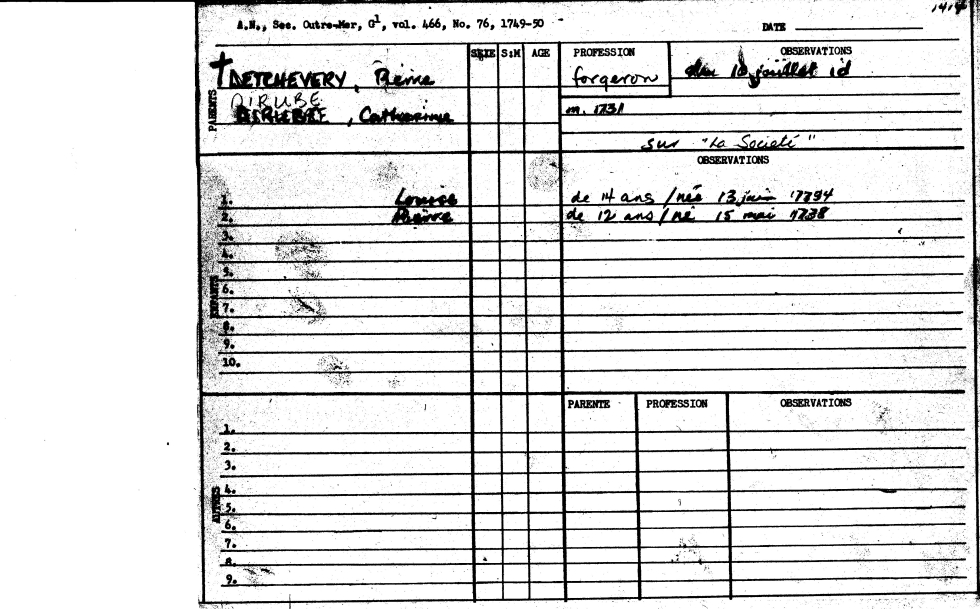 A.N., Sec. Outre-Mer, G1, vol. 466, No. 76, 1749-50
DATE
SEXE S:M AGE PROFESSION OBSERVATIONS
PARENTS
DETCHEVERY, Pierre forgeron du 10 juillet id
DIRUBE
, Catherine m. 1731
sur "La Societé"
OBSERVATIONS
ENFANTS
1. Louise de 14 ans / née 13 juin
2. Pierre de 12 ans / né 15 mai 1738
3.
4.
5.
6.
7.
8.
9.
10.
PARENTE PROFESSION OBSERVATIONS
AUTRES
1.
2.
3.
4.
5.
6.
7.
8.
9.